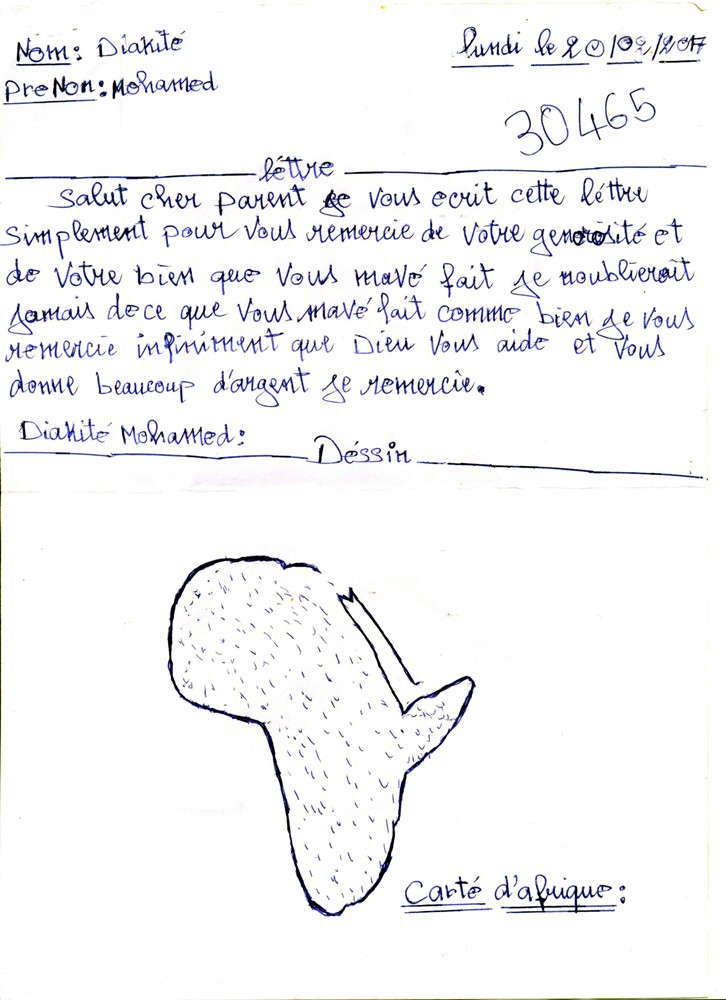 Nom: Diakité
lundi le 20/02/2017
PreNon: Mohamed
30465
léttre
Salut cher parent je vous ecrit cette léttre
simplement pour vous remercie de votre generosité et
de votre bien que vous mavé fait je noublierait
jamais de ce que vous mavé fait comme bien je vous
remercie infiniment que Dieu vous aide et vous
donne beaucoup d'argent je remercie.
Diakité Mohamed:
Déssin
Carté d'afrique: